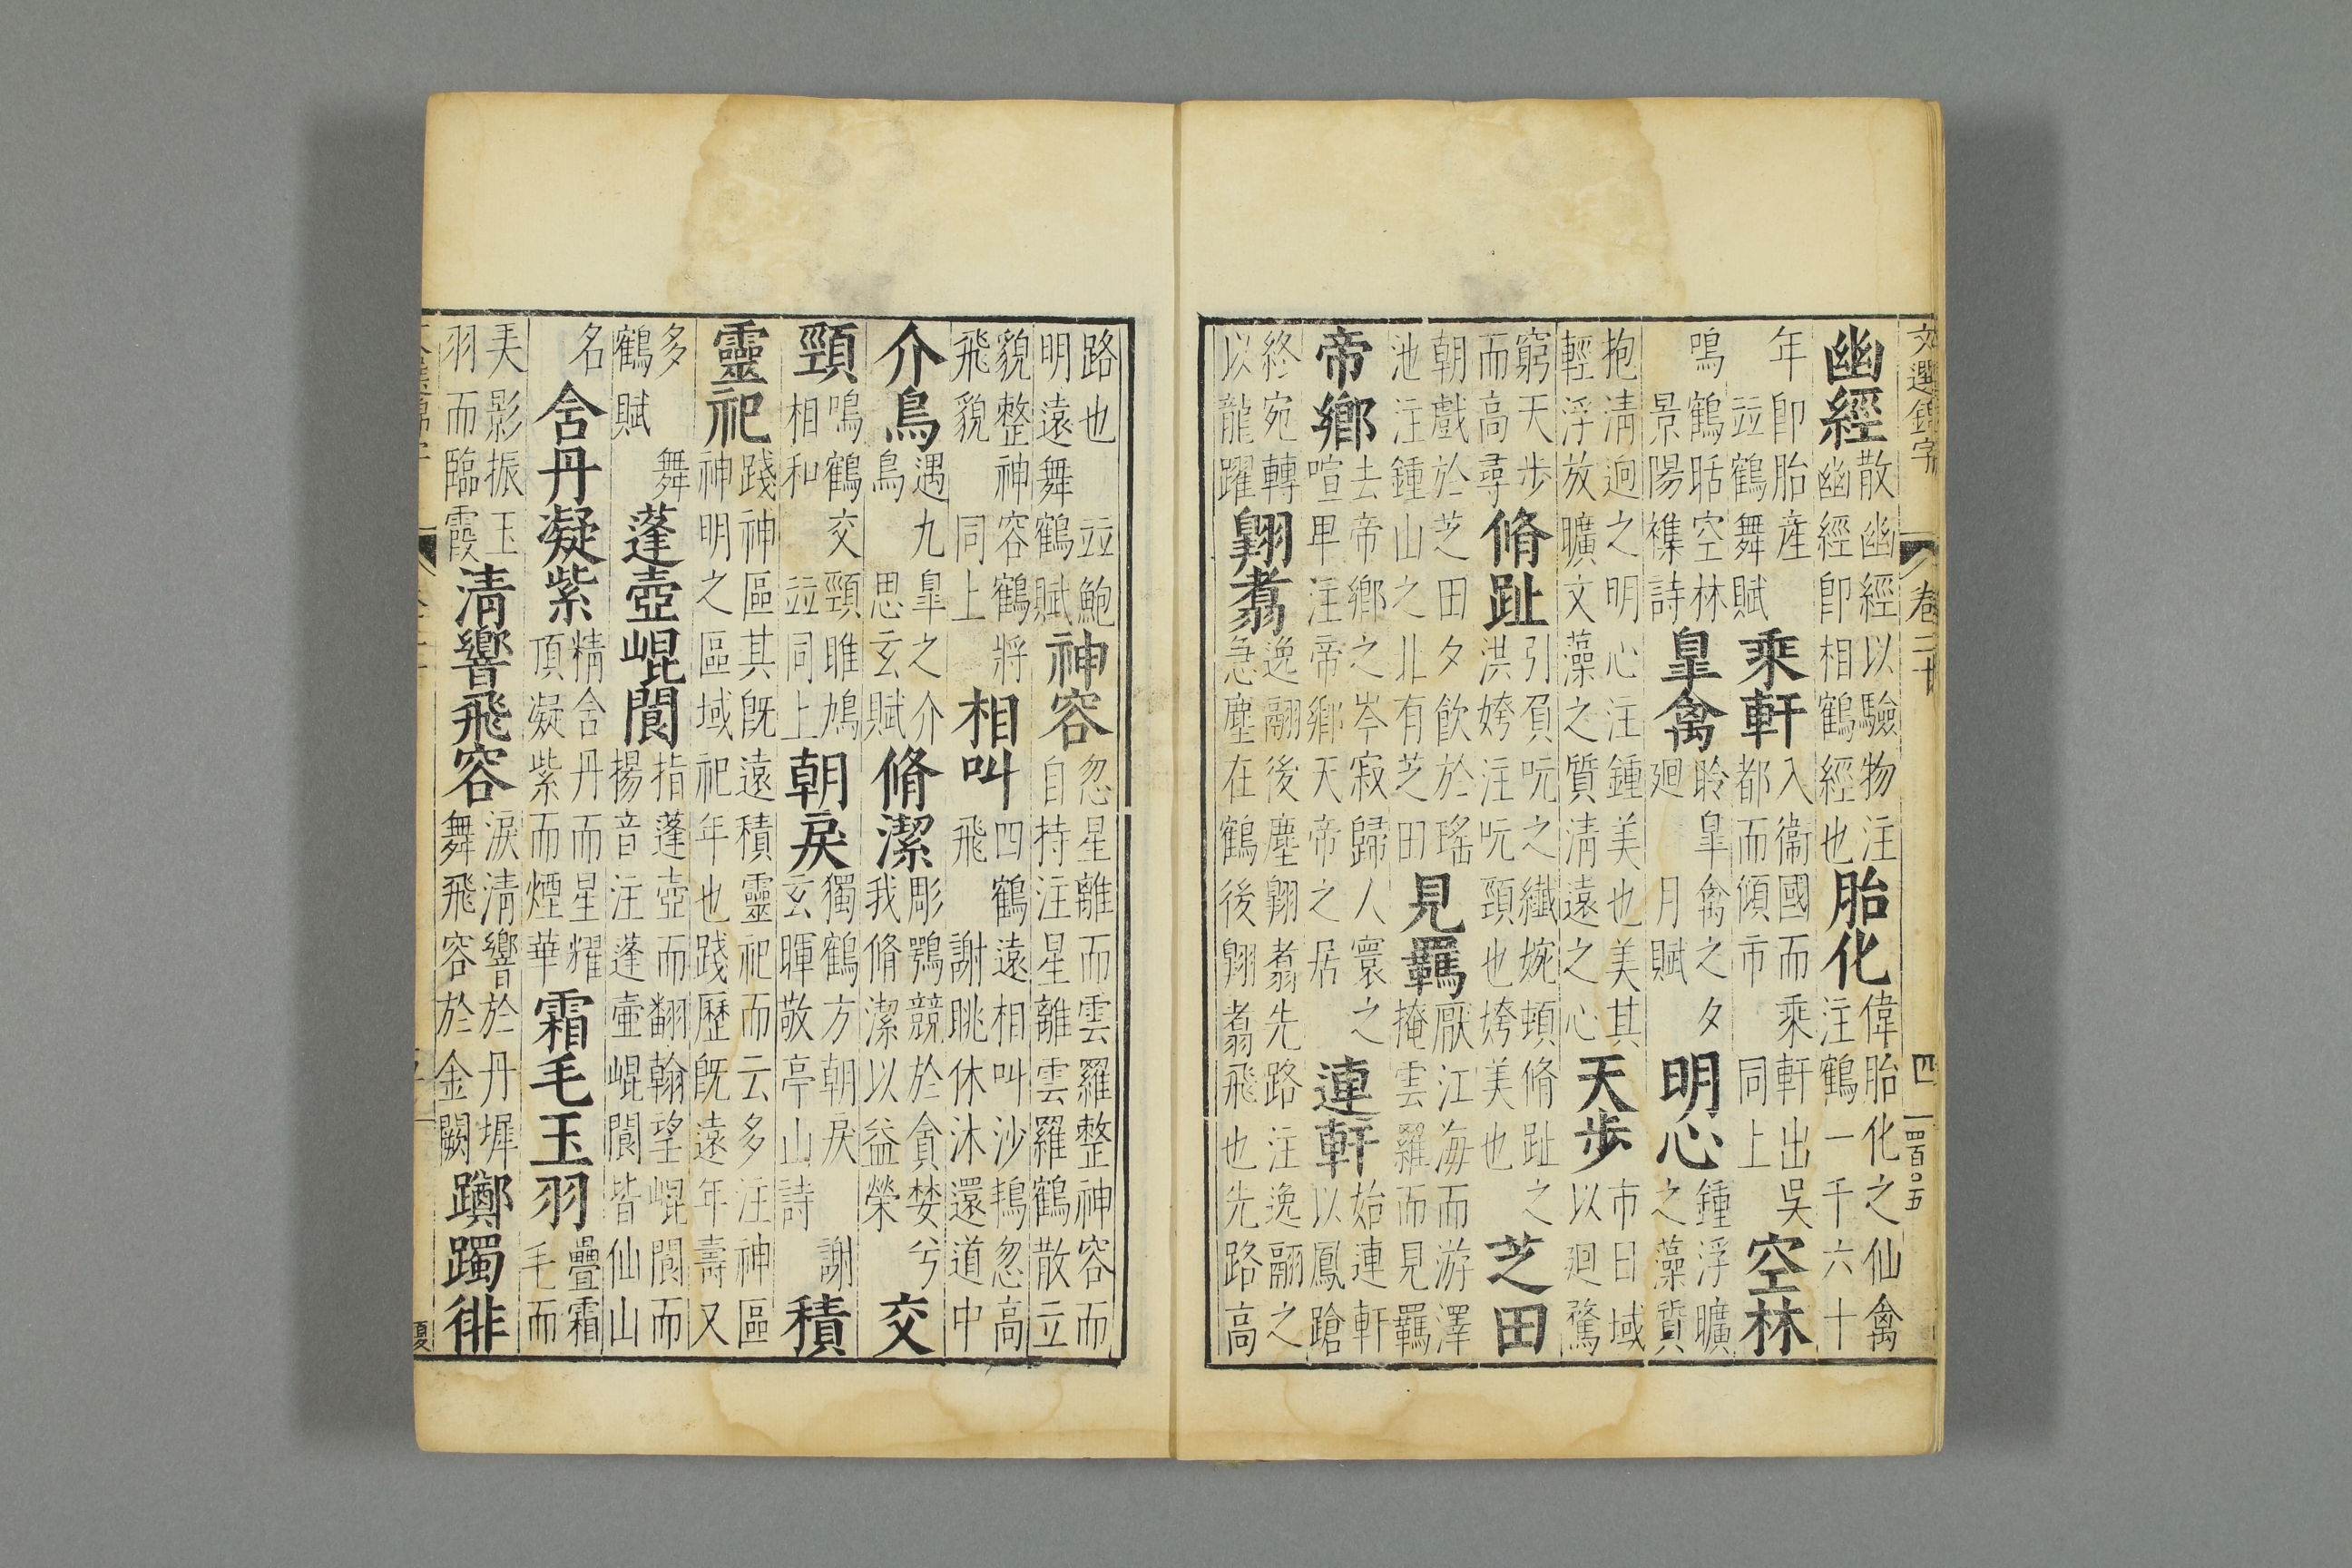 文選錦字 卷二十 四 四百〇五
幽經散幽經以驗物注幽經即相鶴經也胎化偉胎化之仙禽注鶴一千六十
年即胎産並鶴舞賦乘軒入衞國而乘軒出吳都而傾市同上空林
鳴鶴聒空林景陽襍詩皐禽聆皐禽之夕廻月賦明心鍾浮曠之藻質
抱清逈之明心注鍾美也美其輕浮放曠文藻之質清遠之心天步市日域以廻騖
窮天步而高尋脩趾引員吭之纖婉頓脩趾之洪姱注吭頸也姱美也芝田
朝戲於芝田夕飲於瑤池注鍾山之北有芝田見羈厭江海而游澤掩雲羅而見羈
帝鄉去帝鄉之岑寂歸人寰之喧卑注帝鄉天帝之居連軒始連軒以鳳蹌
終宛轉以龍躍翺翥逸翮後塵翺翥先路注逸翮之急塵在鶴後翺翥飛也先路高
路也並鮑明遠舞鶴賦神容忽星離而雲羅整神容而自持注星離雲羅鶴散立
貌整神容鶴將飛貌同上相叫四鶴遠相叫沙鴇忽高飛謝眺休沐還道中
介鳥遇九臯之介鳥思玄賦脩潔彫鶚競於貪婪兮我脩潔以益榮交
頸鳴鶴交頸雎鳩相和並同上朝戾獨鶴方朝戾謝玄暉敬亭山詩積
靈祀踐神區其旣遠積靈祀而云多注神區神明之區域祀年也踐歷旣遠年壽又
多舞鶴賦蓬壺崐閬指蓬壺而翻翰望崐閬而揚音注蓬壷崐閬皆仙山
名含丹凝紫精含丹而星耀頂凝紫而煙華霜毛玉羽疊霜毛而
美影振玉羽而臨霞清響飛容淚清響於丹墀舞飛容於金闕躑躅徘